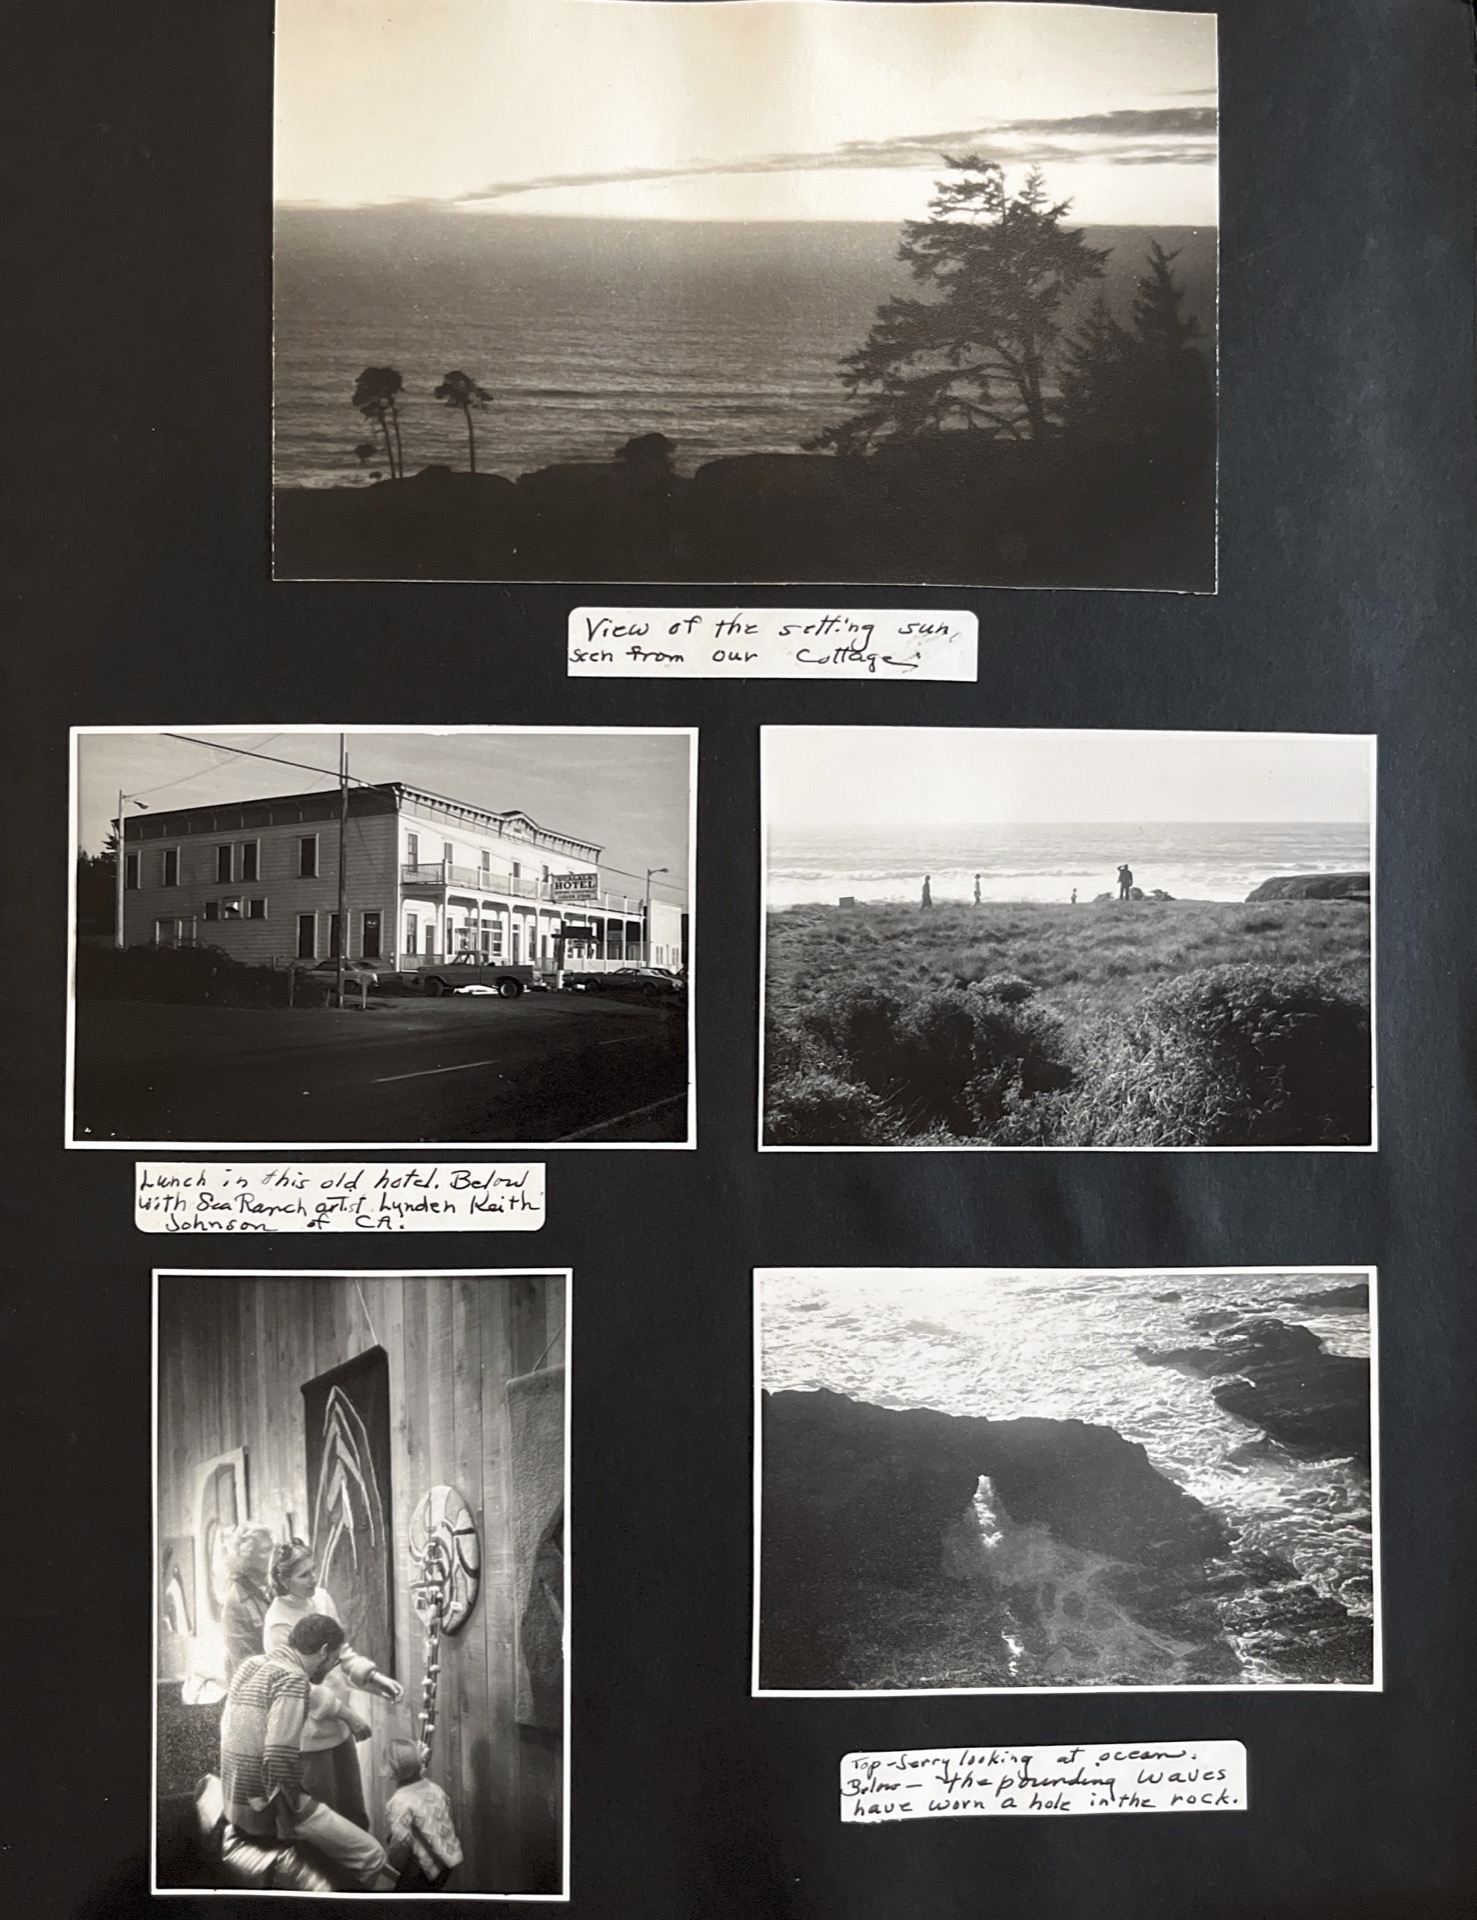 View of the setting sun,
seen from our Cottage.
GUALALA
HOTEL
Lunch in this old hotel. Below
with Sea Ranch artist Lynden Keith
Johnson of CA.
Top-Jerry looking at ocean.
Below- the pounding waves
have worn a hole in the rock.